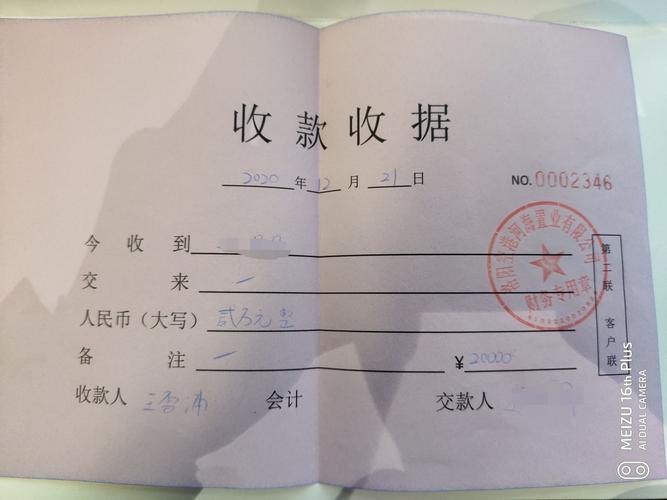 收款收据
2020年12月21日
NO.0002346
今收到
交来 一
人民币（大写）贰万元整
备注 一 ¥20000
收款人 会计 交款人
河海置业有限公司
财务专用章
第二联 客户联
MEIZU 16th Plus
AI DUAL CAMERA